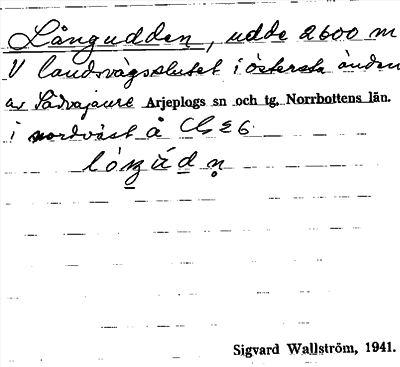 Långudden, udde 2600 m
V landsvägsslutet i östersta ändan
av Sädvajaure Arjeplogs sn och tg, Norrbottens län.
i nordväst å Cb 26
Sigvard Wallström, 1941.